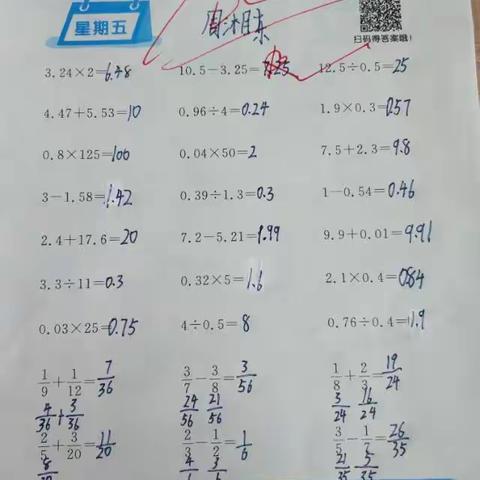 星期五 周湘东
扫码得答案哦!
3.24×2=6.48 10.5-3.25=7.25 12.5÷0.5=25
4.47+5.53=10 0.96÷4=0.24 1.9×0.3=0.57
0.8×125=100 0.04×50=2 7.5+2.3=9.8
3-1.58=1.42 0.39÷1.3=0.3 1-0.54=0.46
2.4+17.6=20 7.2-5.21=1.99 9.9+0.01=9.91
3.3÷11=0.3 0.32×5=1.6 2.1×0.4=0.84
0.03×25=0.75 4÷0.5=8 0.76÷0.4=1.9
1/9+1/12=7/36 3/7-3/8=3/56 1/8+2/3=19/24
4/36+3/36 24/56 21/56 3/24 16/24
2/5+3/20=11/20 2/3-1/2=1/6 3/5-1/7=26/35
21/35 5/35